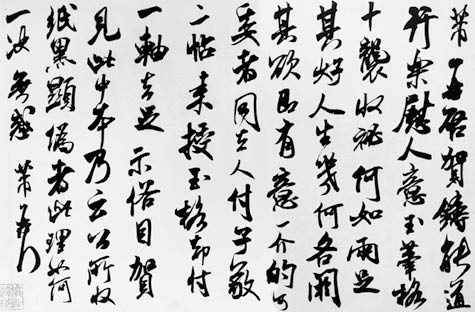 芾再啓賀鑄能道
行樂慰人意玉筆格
十襲收祕何如兩足
其好人生幾何各闕
其欲即有意一介的可
委者同去人付子敬
二帖來授玉格却付
一軸去足示俗目賀
見此中本乃云公所收
紙黑顯偽者此理如何
一決無惑 芾